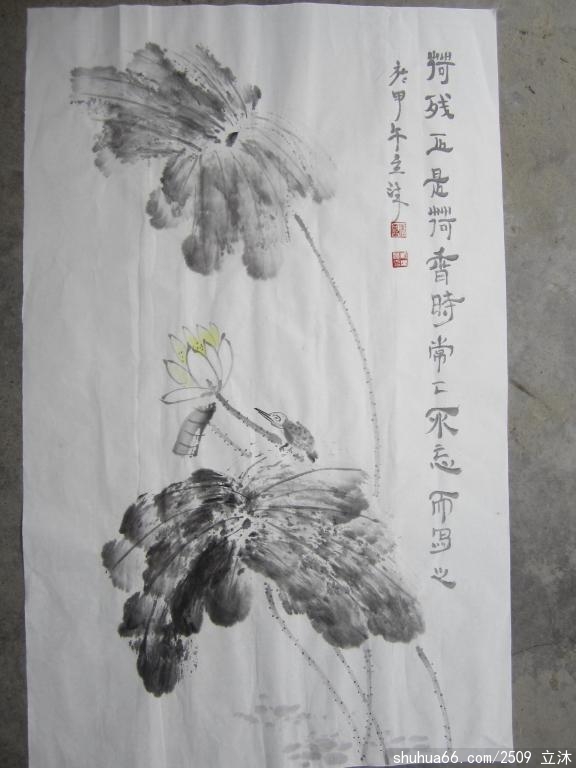 荷残正是荷香時常丁不忘而写之
甲午立沐
shuhua66.com/2509 立沐